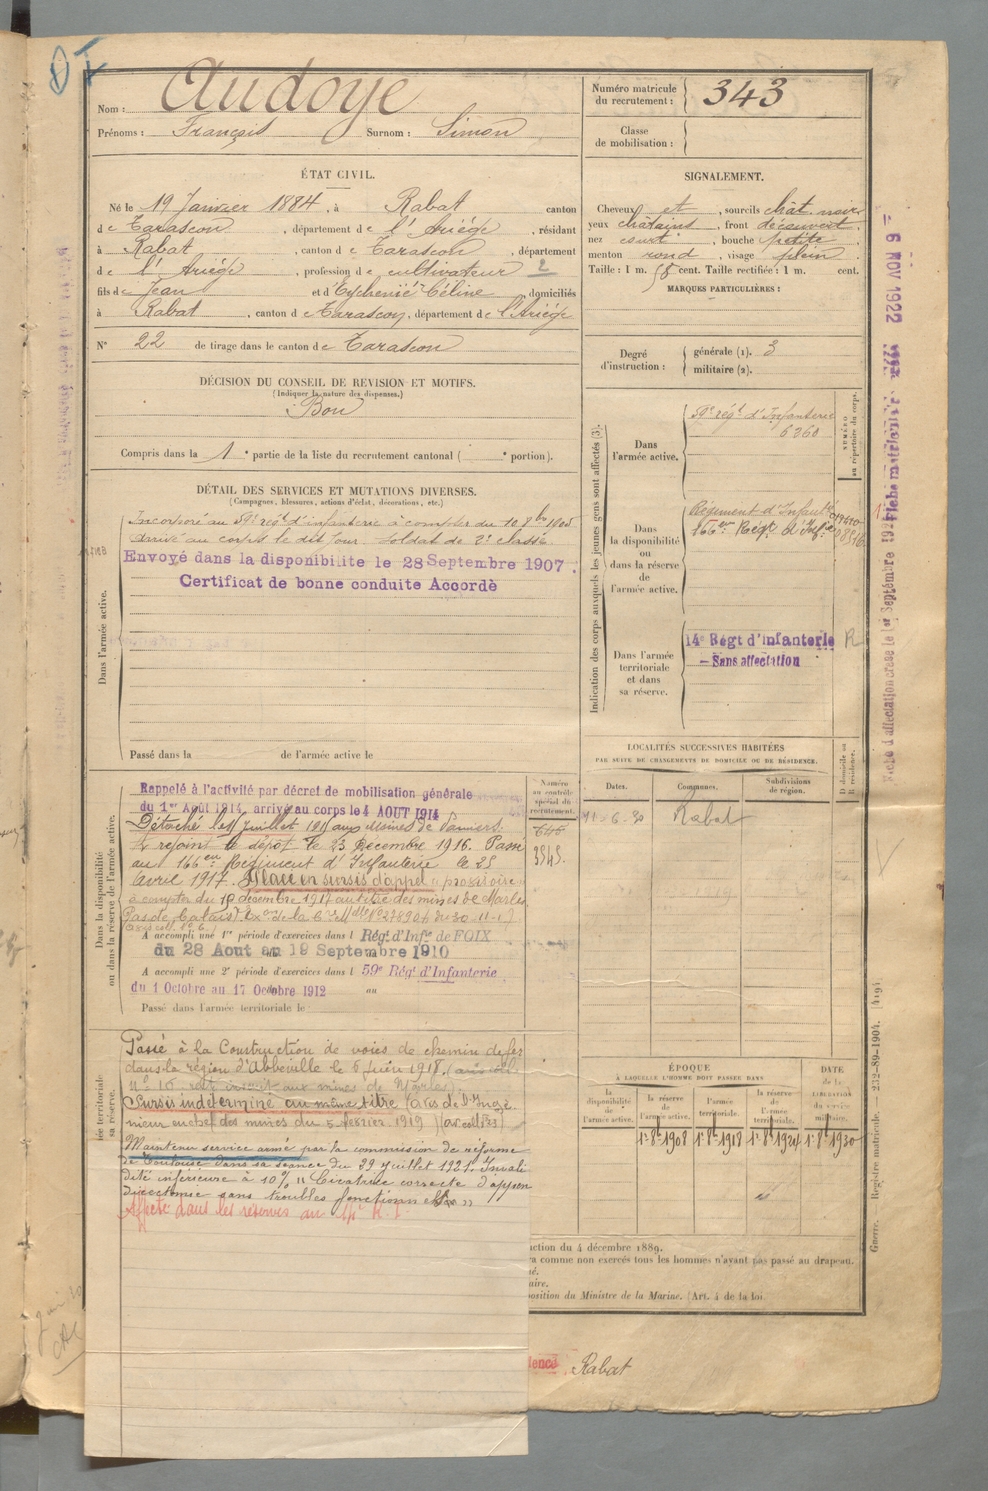 Nom : Audoye
Prénoms : François Surnom : Simon
ÉTAT CIVIL.
Né le 19 Janvier 1884, à Rabat canton
de Tarascon, département de l'Ariége, résidant
à Rabat, canton de Tarascon, département
de l'Ariége, profession de cultivateur 2
fils de Jean et d'Eychenié Céline domiciliés
à Rabat, canton de Tarascon, département de l'Ariége
N° 22 de tirage dans le canton de Tarascon
DÉCISION DU CONSEIL DE REVISION ET MOTIFS.
(Indiquer la nature des dispenses.)
Bon
Compris dans la 1e partie de la liste du recrutement cantonal ( e portion).
DÉTAIL DES SERVICES ET MUTATIONS DIVERSES.
(Campagnes, blessures, actions d'éclat, décorations, etc.)
Dans l'armée active.
Incorporé au 59e régt d'infanterie à compter du 10 8bre 1905
Arrivé au corps le dit jour. Soldat de 2e classe.
Envoyé dans la disponibilité le 28 Septembre 1907.
Certificat de bonne conduite Accordé
Passé dans la de l'armée active le
Dans la disponibilité
ou dans la réserve de l'armée active.
Rappelé à l'activité par décret de mobilisation générale
du 1er Août 1914, arrivé au corps le 4 AOUT 1914
Détaché le juillet aux usines de Pamiers.
A rejoint le dépôt le 23 Décembre 1916. Passé
au 166eme Régiment d'Infanterie le 25
Avril 1917. Placé en sursis d'appel provisoire
à compter du 19 décembre 1917 au titre des mines de Marles
Pas de Calais)
A accompli une 1re période d'exercices dans l Régt d'Infie de FOIX
du 28 Aout au 19 Septembre 1910
A accompli une 2e période d'exercices dans l 59e Régt d'Infanterie
du 1 Octobre au 17 Octobre 1912 au
Passé dans l'armée territoriale le
Numéro
au contrôle
spécial du
recrutement.
3545.
Passé à la Construction de voies de chemin de fer
dans la région d'Abbeville le 6 juin 1918.
Sursis indeterminé au même titre (avis de l'Ingé-
nieur en chef des mines du 5 février 1919)
Maintenu service armé par la commission de réforme
de Toulouse dans sa séance du 29 juillet 1921. Invali-
dité inférieure à 10% "Cicatrice correcte d'appen-
dicectomie sans troubles fonctionnels"
Affecté dans les réserves au 14e R.I.
Numéro matricule
du recrutement : 343
Classe
de mobilisation :
SIGNALEMENT.
Cheveux et, sourcils chât. noir
yeux châtains, front découvert,
nez court, bouche petite,
menton rond, visage plein
Taille : 1 m. 58 cent. Taille rectifiée : 1 m. cent.
MARQUES PARTICULIÈRES :
Degré
d'instruction :
générale (1). 3
militaire (2).
Indication des corps auxquels les jeunes gens sont affectés (3).
Dans
l'armée active.
59e régt d'Infanterie
6360
NUMÉRO
au répertoire du corps.
Dans
la disponibilité
ou
dans la réserve
de
l'armée active.
Régiment d'Infanterie
166eme Régt d'Infie
Dans l'armée
territoriale
et dans
sa réserve.
14e Régt d'Infanterie R
– Sans affectation
LOCALITÉS SUCCESSIVES HABITÉES
PAR SUITE DE CHANGEMENTS DE DOMICILE OU DE RÉSIDENCE.
Dates. Communes. Subdivisions de région. D domicile ou R résidence.
Rabat
ÉPOQUE
À LAQUELLE L'HOMME DOIT PASSER DANS
DATE
de la
LIBÉRATION
du service
militaire.
la disponibilité de l'armée active. la réserve de l'armée active. l'armée territoriale. la réserve de l'armée territoriale.
1er 8bre 1908 1er 8bre 1918 1er 8bre 1924 1er 8bre 1930
uction du 4 décembre 1889.
ra comme non exercés tous les hommes n'ayant pas passé au drapeau.
position du Ministre de la Marine. (Art. 4 de la loi.
dence Rabat
Guerre. — Registre matricule. — 232-89-1904. [419]
9 NOV 1922
Fiche d'affectation créée le 1er Septembre 19